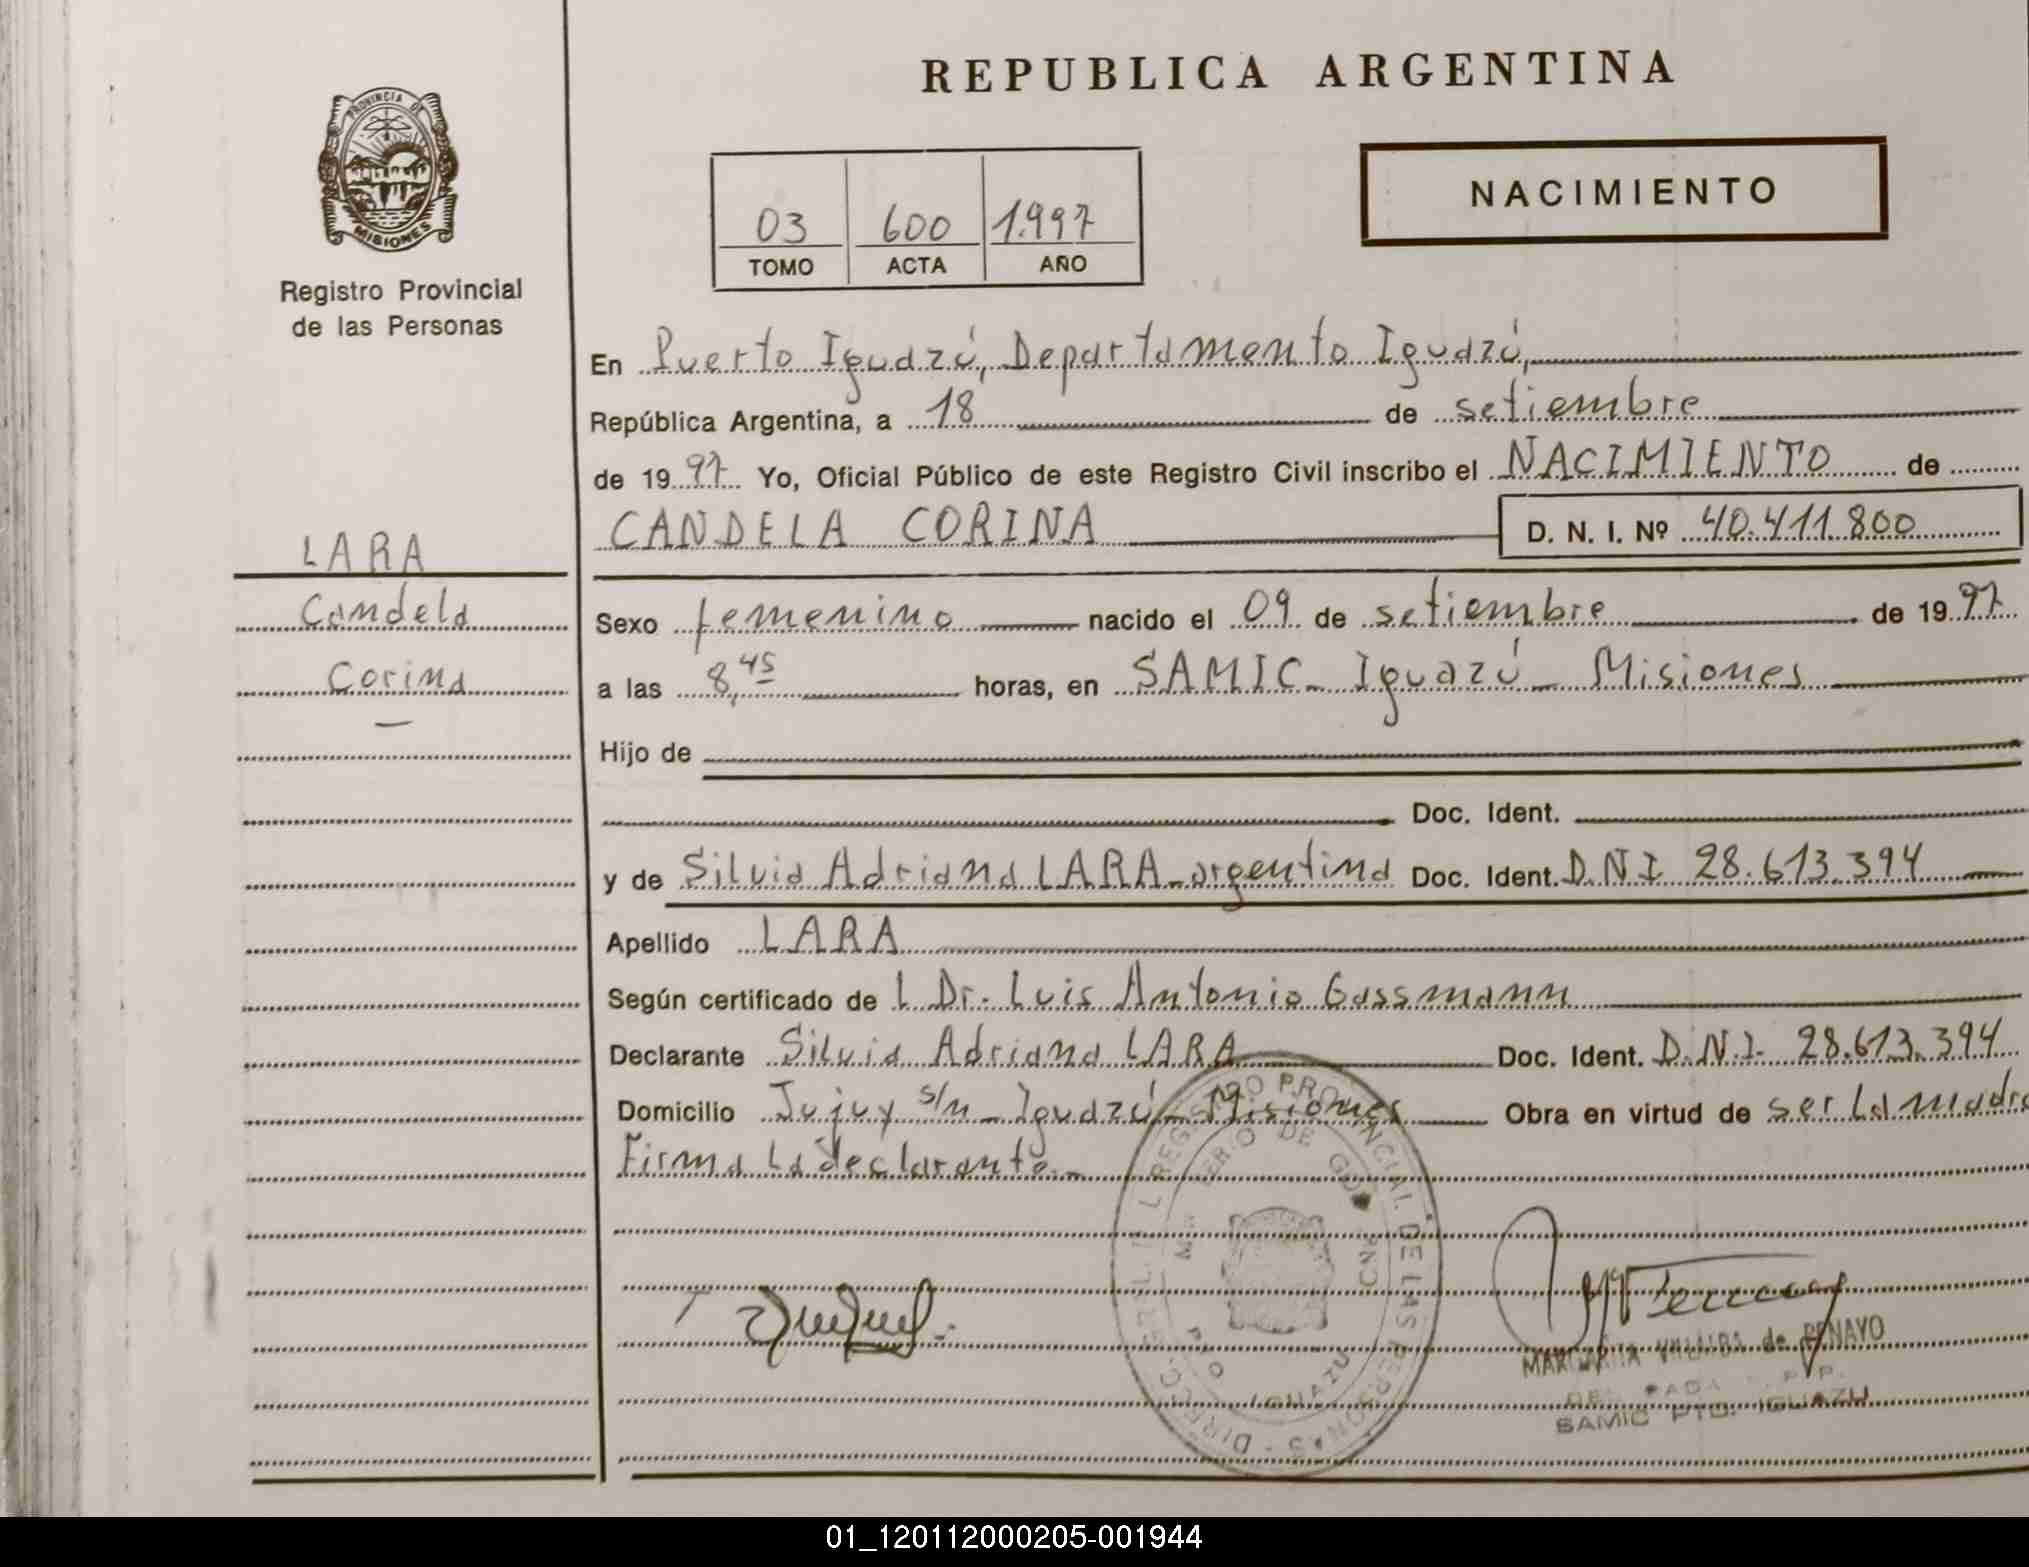 REPUBLICA ARGENTINA
PROVINCIA DE
MISIONES
Registro Provincial
de las Personas
NACIMIENTO
03 600 1.997
TOMO ACTA AÑO
En Puerto Iguazú, Departamento Iguazú,
República Argentina, a 18 de setiembre
de 1997 Yo, Oficial Público de este Registro Civil inscribo el NACIMIENTO de
CANDELA CORINA D. N. I. Nº 40.411.800
LARA
Candela
Corina
Sexo femenino nacido el 09 de setiembre de 1997
a las 8,45 horas, en SAMIC - Iguazú - Misiones
Hijo de
Doc. Ident.
y de Silvia Adriana LARA - argentina Doc. Ident. D.N.I 28.613.394
Apellido LARA
Según certificado de l Dr. Luis Antonio Gassmann
Declarante Silvia Adriana LARA Doc. Ident. D.N.I. 28.613.394
Domicilio Jujuy s/n - Iguazú - Misiones Obra en virtud de ser la madre
Firma la declarante.-
REGISTRO PROVINCIAL DE LAS PERSONAS
IGUAZU
MARGARITA VILLALBA de PENAYO
SAMIC PTO. IGUAZU
01_120112000205-001944